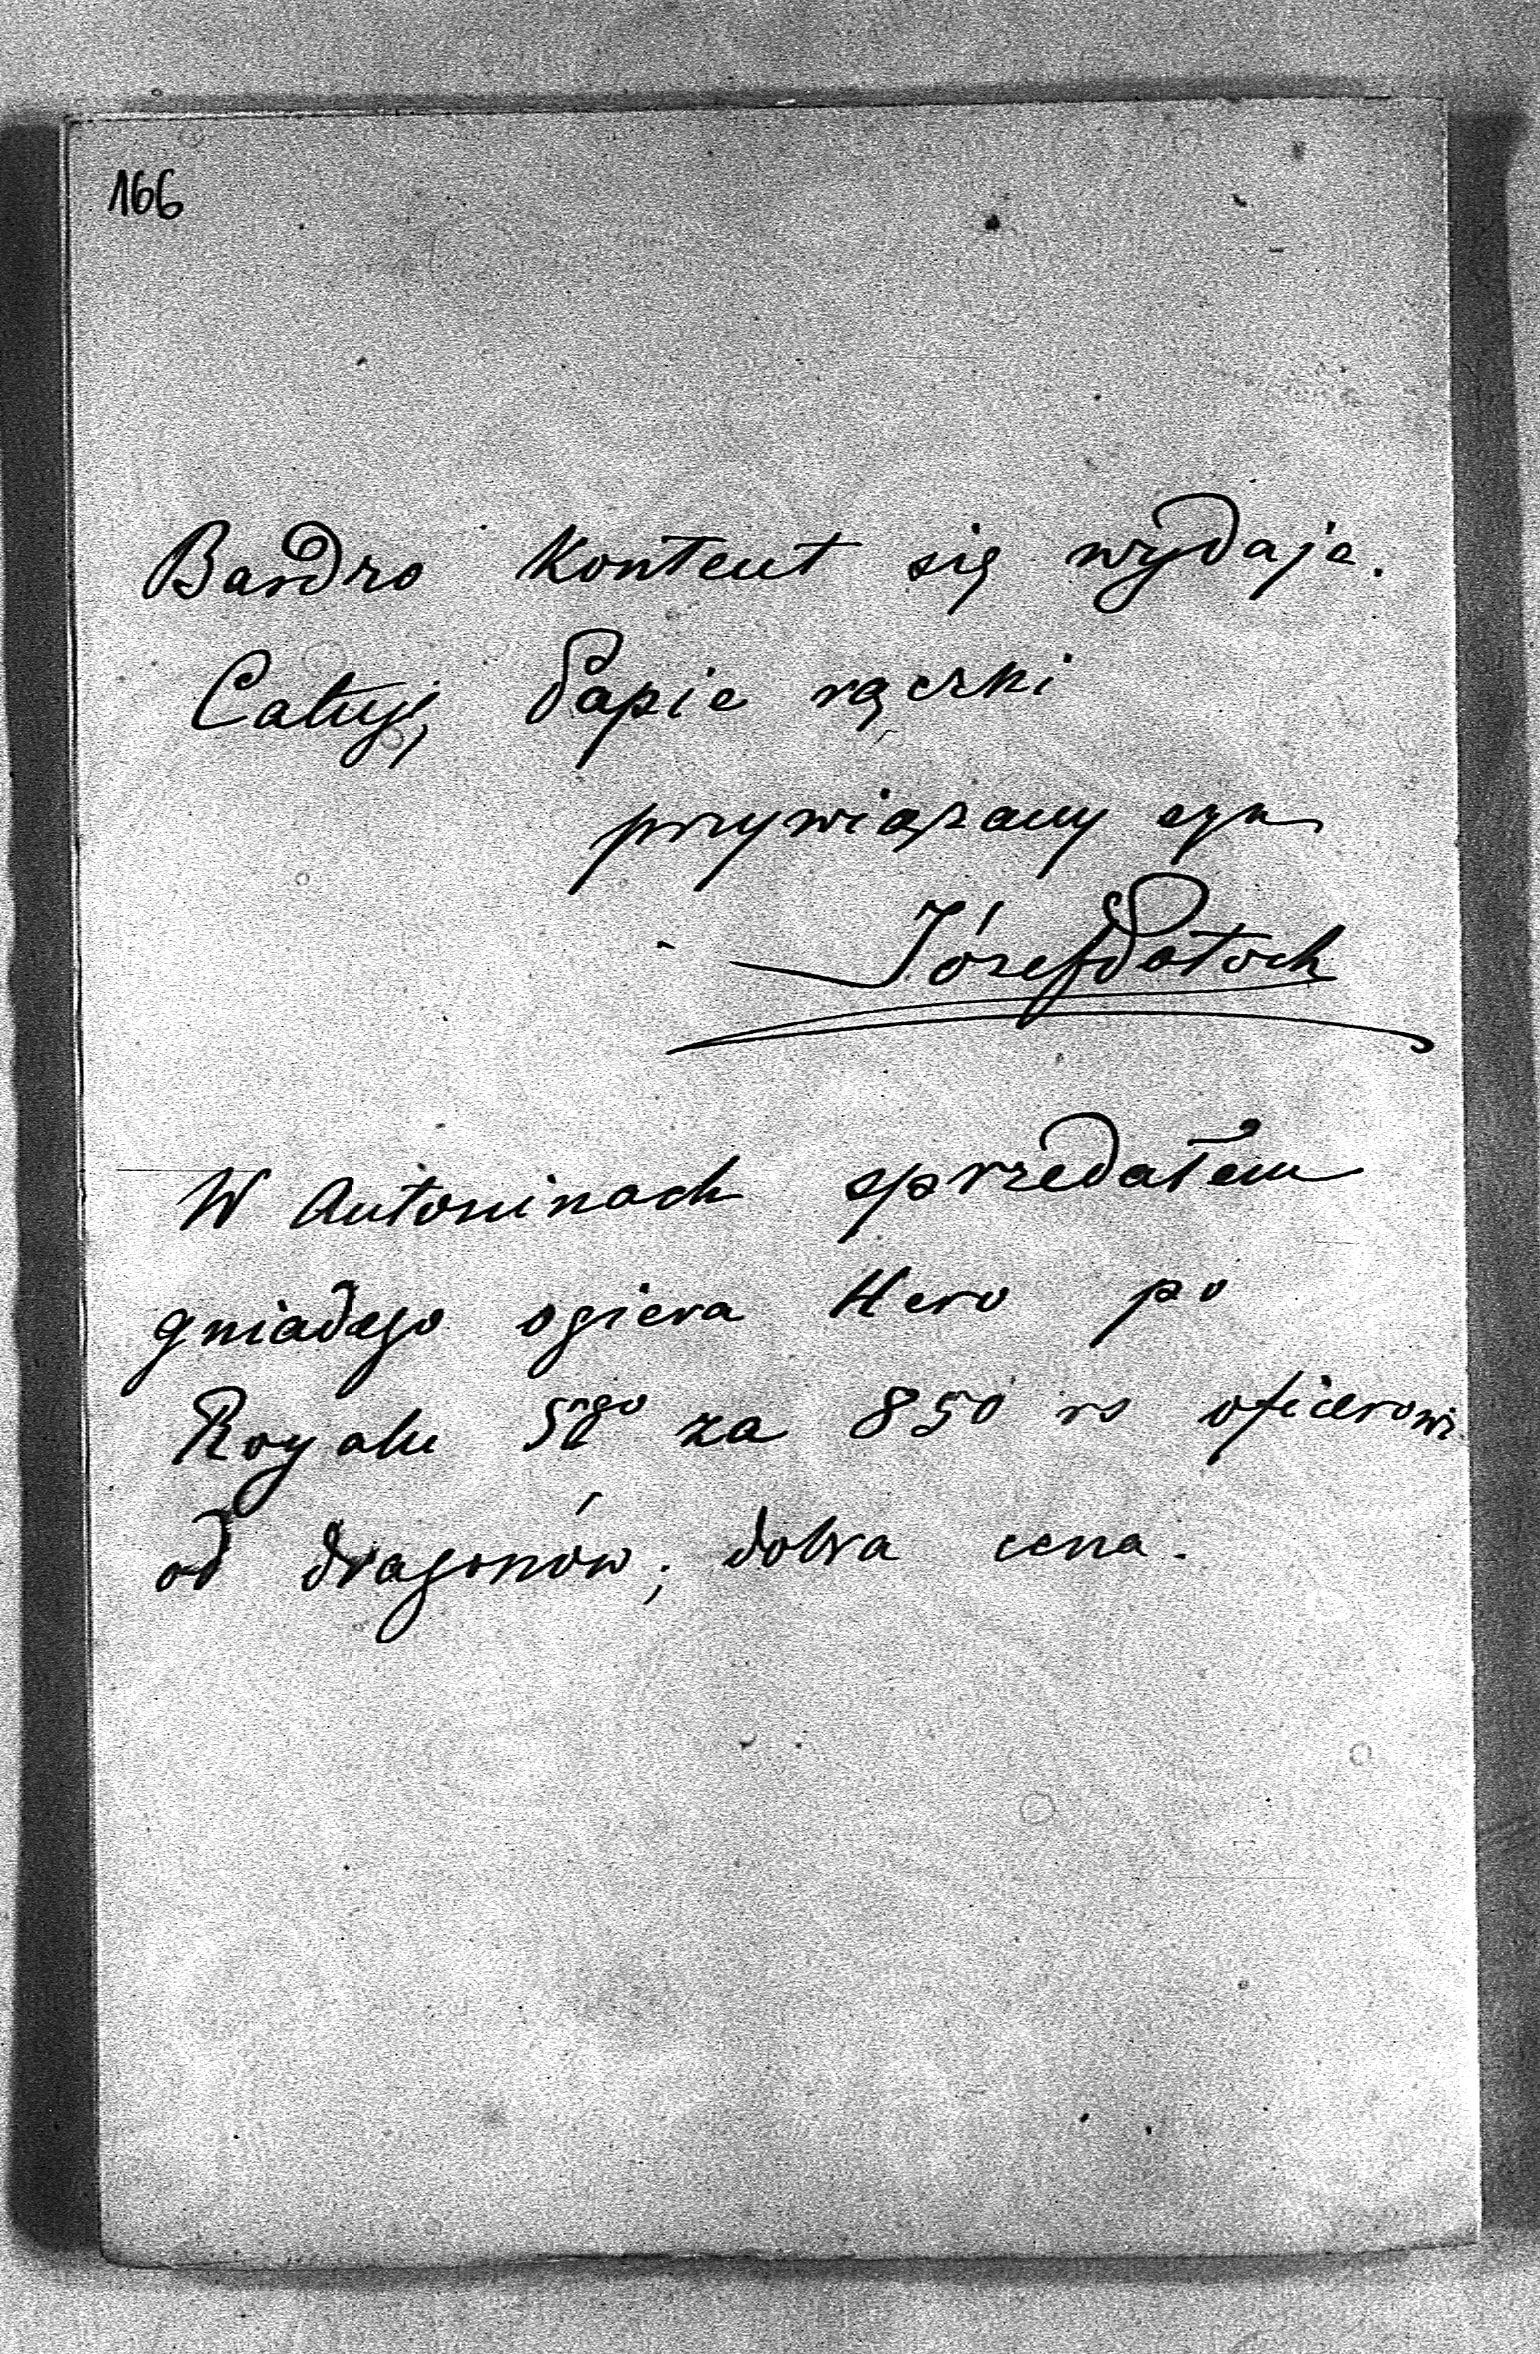 166
Bardzo kontent się wydaje.
Całuję Papie rączki
przywiązany syn
Józef Potock
W Antoninach sprzedałem
gniadego ogiera Hero po
Royalu 5ego za 850 rs oficerowi
od dragonów; dobra cena.